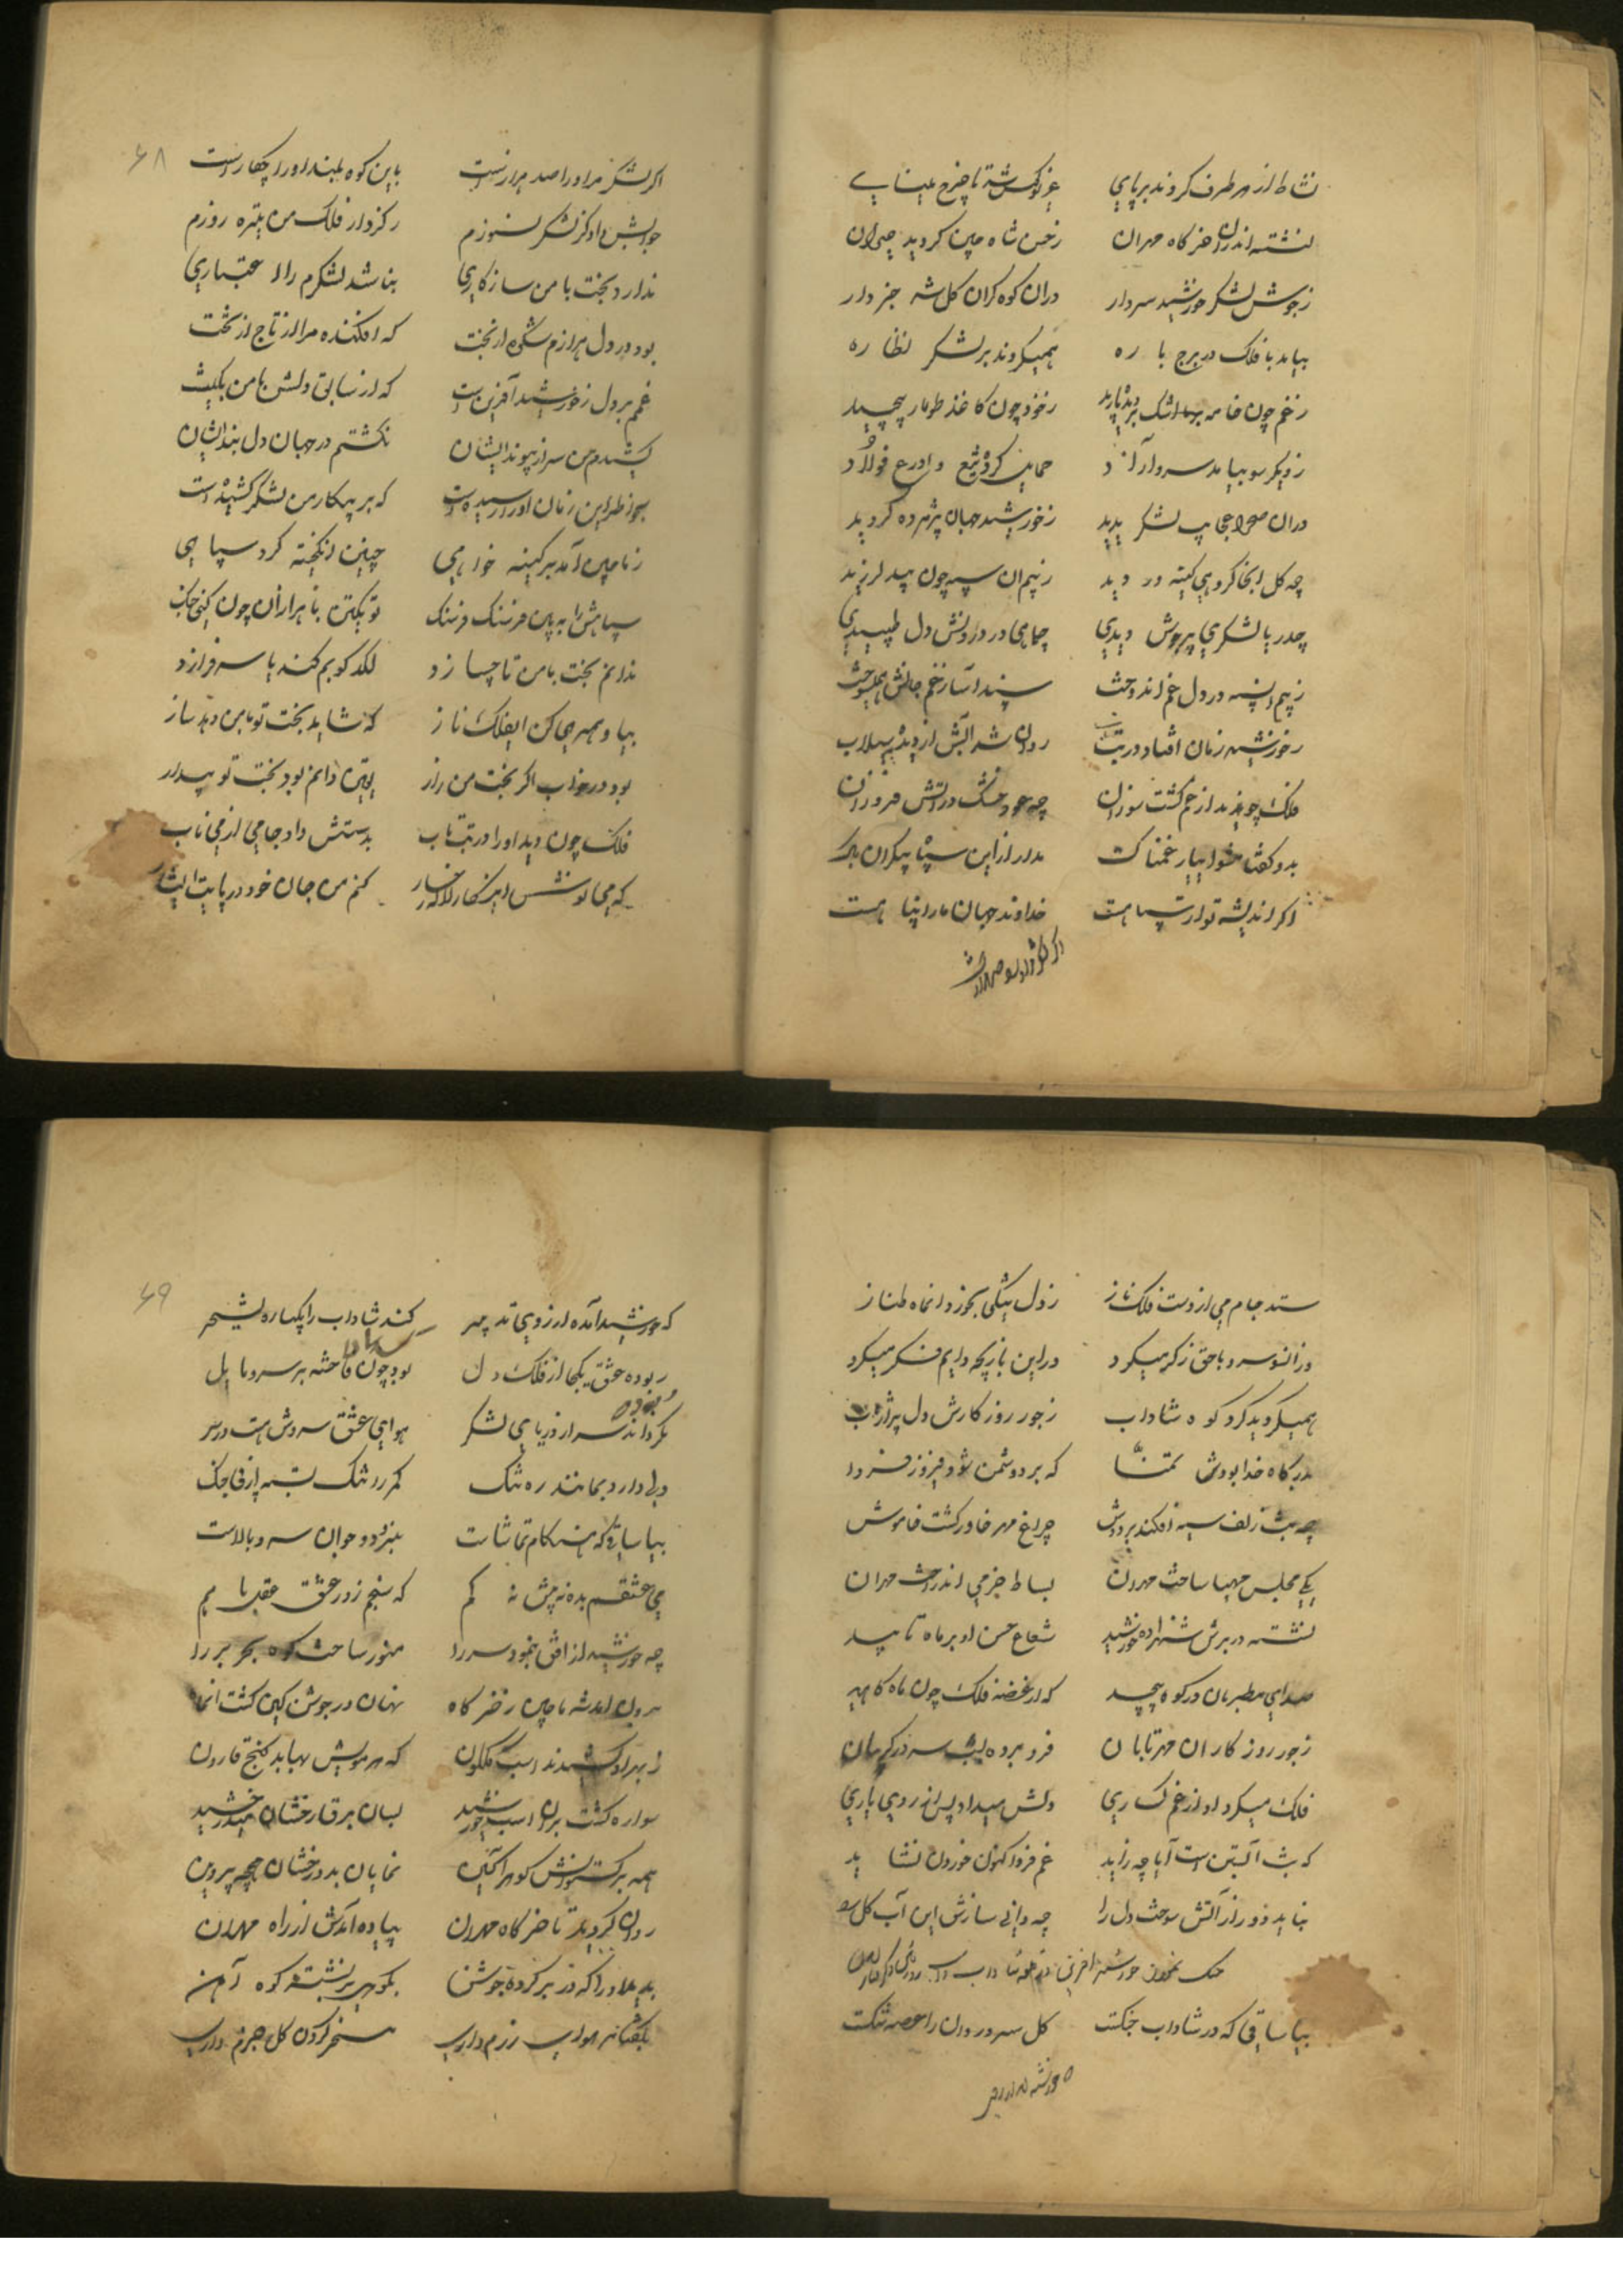 نشاط از هر طرف کردند برپای غریو کوس شد تا چرخ مینای
نشسته اندران خرکاه مهران زحسن شاه چین کردید حیران
زجوش لشکر خورشید سردار دران کوه کران کل شه خبردار
بیامد با فلک در برج باره همیکردند بر لشکر نظاره
زغم چون خامه اشک بخود چون کاغذ طومار پیچید
ز دیکر سو بیامد سرو آزاد حمایل کرده تیغ و درع فولاد
دران صحرا عجایب لشکر بدید زخورشید جهان پژمرده کردید
چه کل انجا کروهی کینه ور دید زبیم ان سپه چون بید لرزید
چه دریا لشکری پرجوش دیدی دل طپیدی
زبیم ان سپه در دل غم اندوخت سپند آسا زغم جانش همیسوخت
زخورشید زمان افتاد در تاب روان شد آبش از دیده سیلاب
فلک چو دید از غم کشت سوزان چه عود خشک در آتش فروزان
بدو کفتا مشو ای یار غمناک مدار از این سپاه بیکران باک
اکر اندیشه تو از سپاهست خداوند جهان مارا پناهست
اکر لشکر مر اورا صد هزارست باین کوه بلند اورا چکارست
جوابش داد کز لشکر نسوزم ز کردار فلک من تیره روزم
ندارد بخت با من سازکاری نباشد لشکرم را اعتباری
بود در دل هزارم شکوه از بخت که افکنده مرا از تاج از تخت
غمم بر دل زخورشید آفرین است که از سابق دلش با من بکین است
کشیدم من سر از پیوند ایشان نکشتم در جهان دل بند ایشان
بجوز طبر این زمان اورا رسیده است که بر پیکار من لشکر کشیده است
ز ناچین آمد بر کینه خواهی چنین انکیخته کرد سپاهی
سپاهش را به بین فرسنک فرسنک تو یکتن با هزاران چون کنی جنک
ندانم بخت با من تا چسازد لکدکوبم کند یا سرفرازد
بیا و همرهی کن ایفلک ناز که شاید بخت تو با من دهد ساز
بود در خواب اکر بخت من زار یقین دانم بود بخت تو بیدار
فلک چون دید اورا در تب تاب بدستش داد جامی از می ناب
که می نوش ای نکار لاله رخسار کنم من جان خود در پایت ایثار
۶۸
ستد جام می از دست فلک ناز ز دل تنکی بخورد انماه طناز
وزانسو سرو با حق ذکر میکرد دراین بازیچه دایم فکر میکرد
همیکردید کرد کوه شاداب زجور روزکارش دل پر
بدرکاه خدا بودش تمنا که بر دشمن شود فیروز فردا
چه شب زلف سیه افکند بر دوش چراغ مهر خاور کشت خاموش
یکی مجلس مهیا ساخت مهران بساط خرمی انداخت مهران
نشسته در برش شهزاده خورشید شعاع حسن او بر ماه تابید
صدای مطربان در کوه پیچید که از غصه فلک چون ماه کاهید
زجور روزکار ان مهر تابان فرو برده بشب سر در کریبان
فلک میکرد او از غم کساری دلش میداد پس از روی یاری
که شب آبستن است آیا چه زاید غم فردا کنون خوردن نشاید
نباید زود راز آتش سوخت دل را چه دانی سازش این آب کل
بیا ساقی که در شاداب جنکست کل سرو روان را عرصه تنکست
که خورشید آمده از روی تدبیر کند شاداب را یکباره تسخیر
ربوده عشق یکجا از فلک دل بود چون فاخته بر سرو مایل
نکرداند سر از دریای لشکر هوای عشق سروش هست در سر
دلی دارد بمانند ره تنک کمر را تنک بسته از پی جنک
بیا ساقی که هنکام تماشاست نبرد دو جوان سرو بالاست
می عشقم بده نه بیش نه کم که سنجم زور عشق و عقل باهم
چه خورشید از افق بنمود سر را منور ساخت کوه بحر بر را
برون امد شه ناچین زخرکاه نهان در جوشن کین کشت انماه
زبهر او کشیدند اسب کلکون که هر مویش بهابد کنج قارون
سواره کشت بران اسب خورشید بسان برق رخشان میدرخشید
همه برکستوانش کوهر آکین نمایان بد درخشان همچو پروین
روان کردید تا خرکاه مهران پیاده آمدش از راه مهران
بدید اورا که در بر کرده جوشن بکوهی بر نشسته کوه آهن
بکفتا هوای رزم داری مسخر کردن کل جزم داری
۶۹